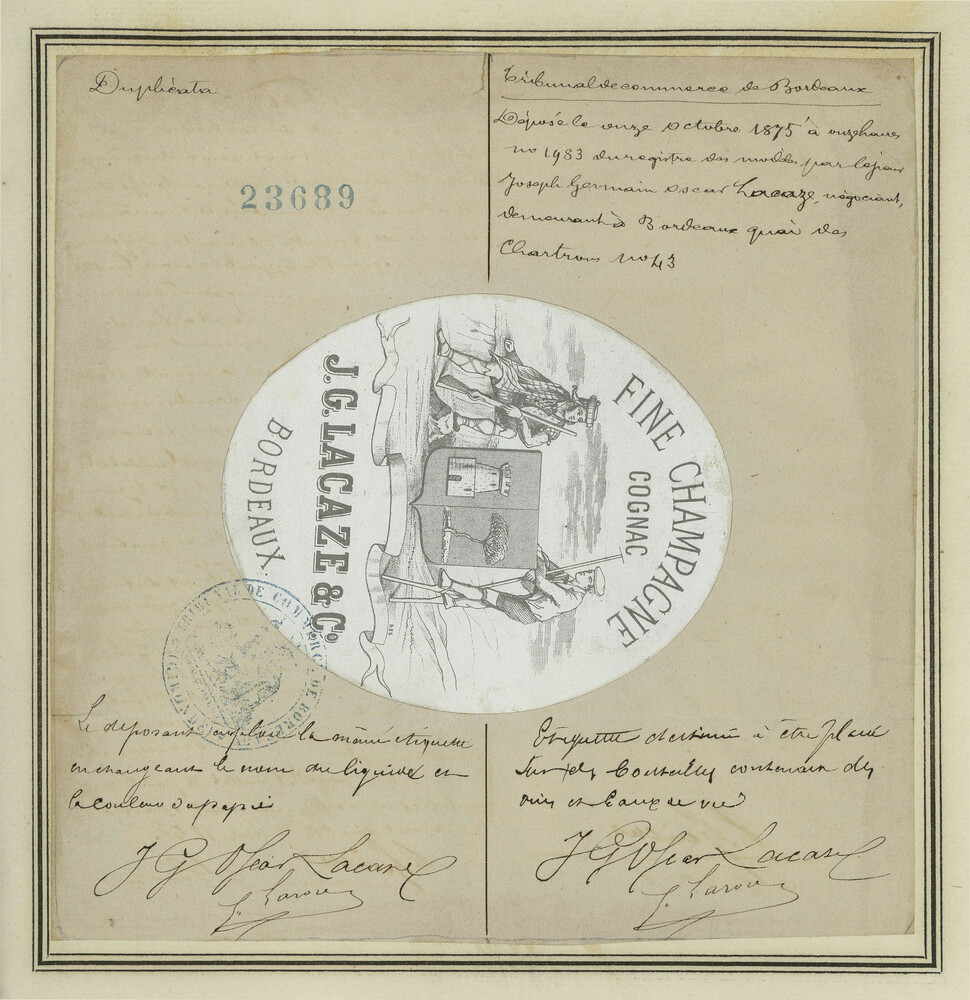 Duplicata
23689
Tribunal de commerce de Bordeaux
Déposé le onze octobre 1875 à onze heures
no 1983 du registre des modèles par le sieur
Joseph Germain Oscar Lacaze, négociant,
demeurant à Bordeaux quai des
Chartrons no 43
FINE CHAMPAGNE
COGNAC
J. G. LACAZE & Cº.
BORDEAUX.
TRIBUNAL DE COMMERCE DE BORDEAUX
Le déposant emploie la même étiquette
en changeant le nom du liquide et
la couleur du papier
J G Oscar Lacaze
Etiquette destinée à être placée
sur des bouteilles contenant des
vins et Eaux de vie
J G Oscar Lacaze